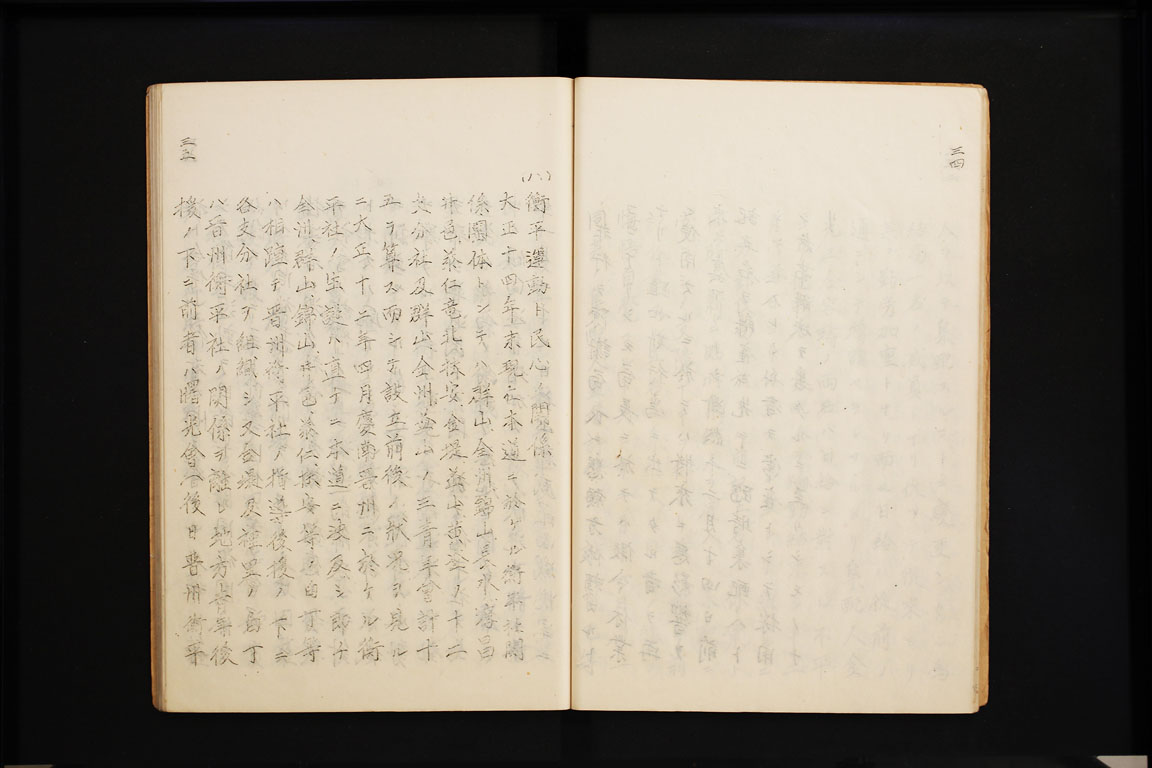 三四
(八)
衡平運動ト民心ノ関係
大正十四年末現在本道ニ於ケル衡平社関
係團体トシテハ群山、全州、錦山、長水、淳昌
井邑、泰仁、竜北、扶安、金堤、益山、黄登ノ十二
支分社及群山、全州、益山ノ三青年會計十
五ヲ算ス而シテ設立前後ノ状況ヲ見ル
ニ大正十二年四月慶南晋州ニ於ケル衡
平社ノ生誕ハ直チニ本道ニ波及シ即チ
金州、群山、錦山、井邑、泰仁、扶安等ノ白丁等
ハ相踵テ晋州衡平社ノ指導後援ノ下ニ
各支分社ヲ組織シ又金堤及裡里ノ旧丁
ハ晋州衡平社ノ関係ヲ離レ地方青年後
援ノ下ニ前者ハ曙光會(後日晋州衡平
三三